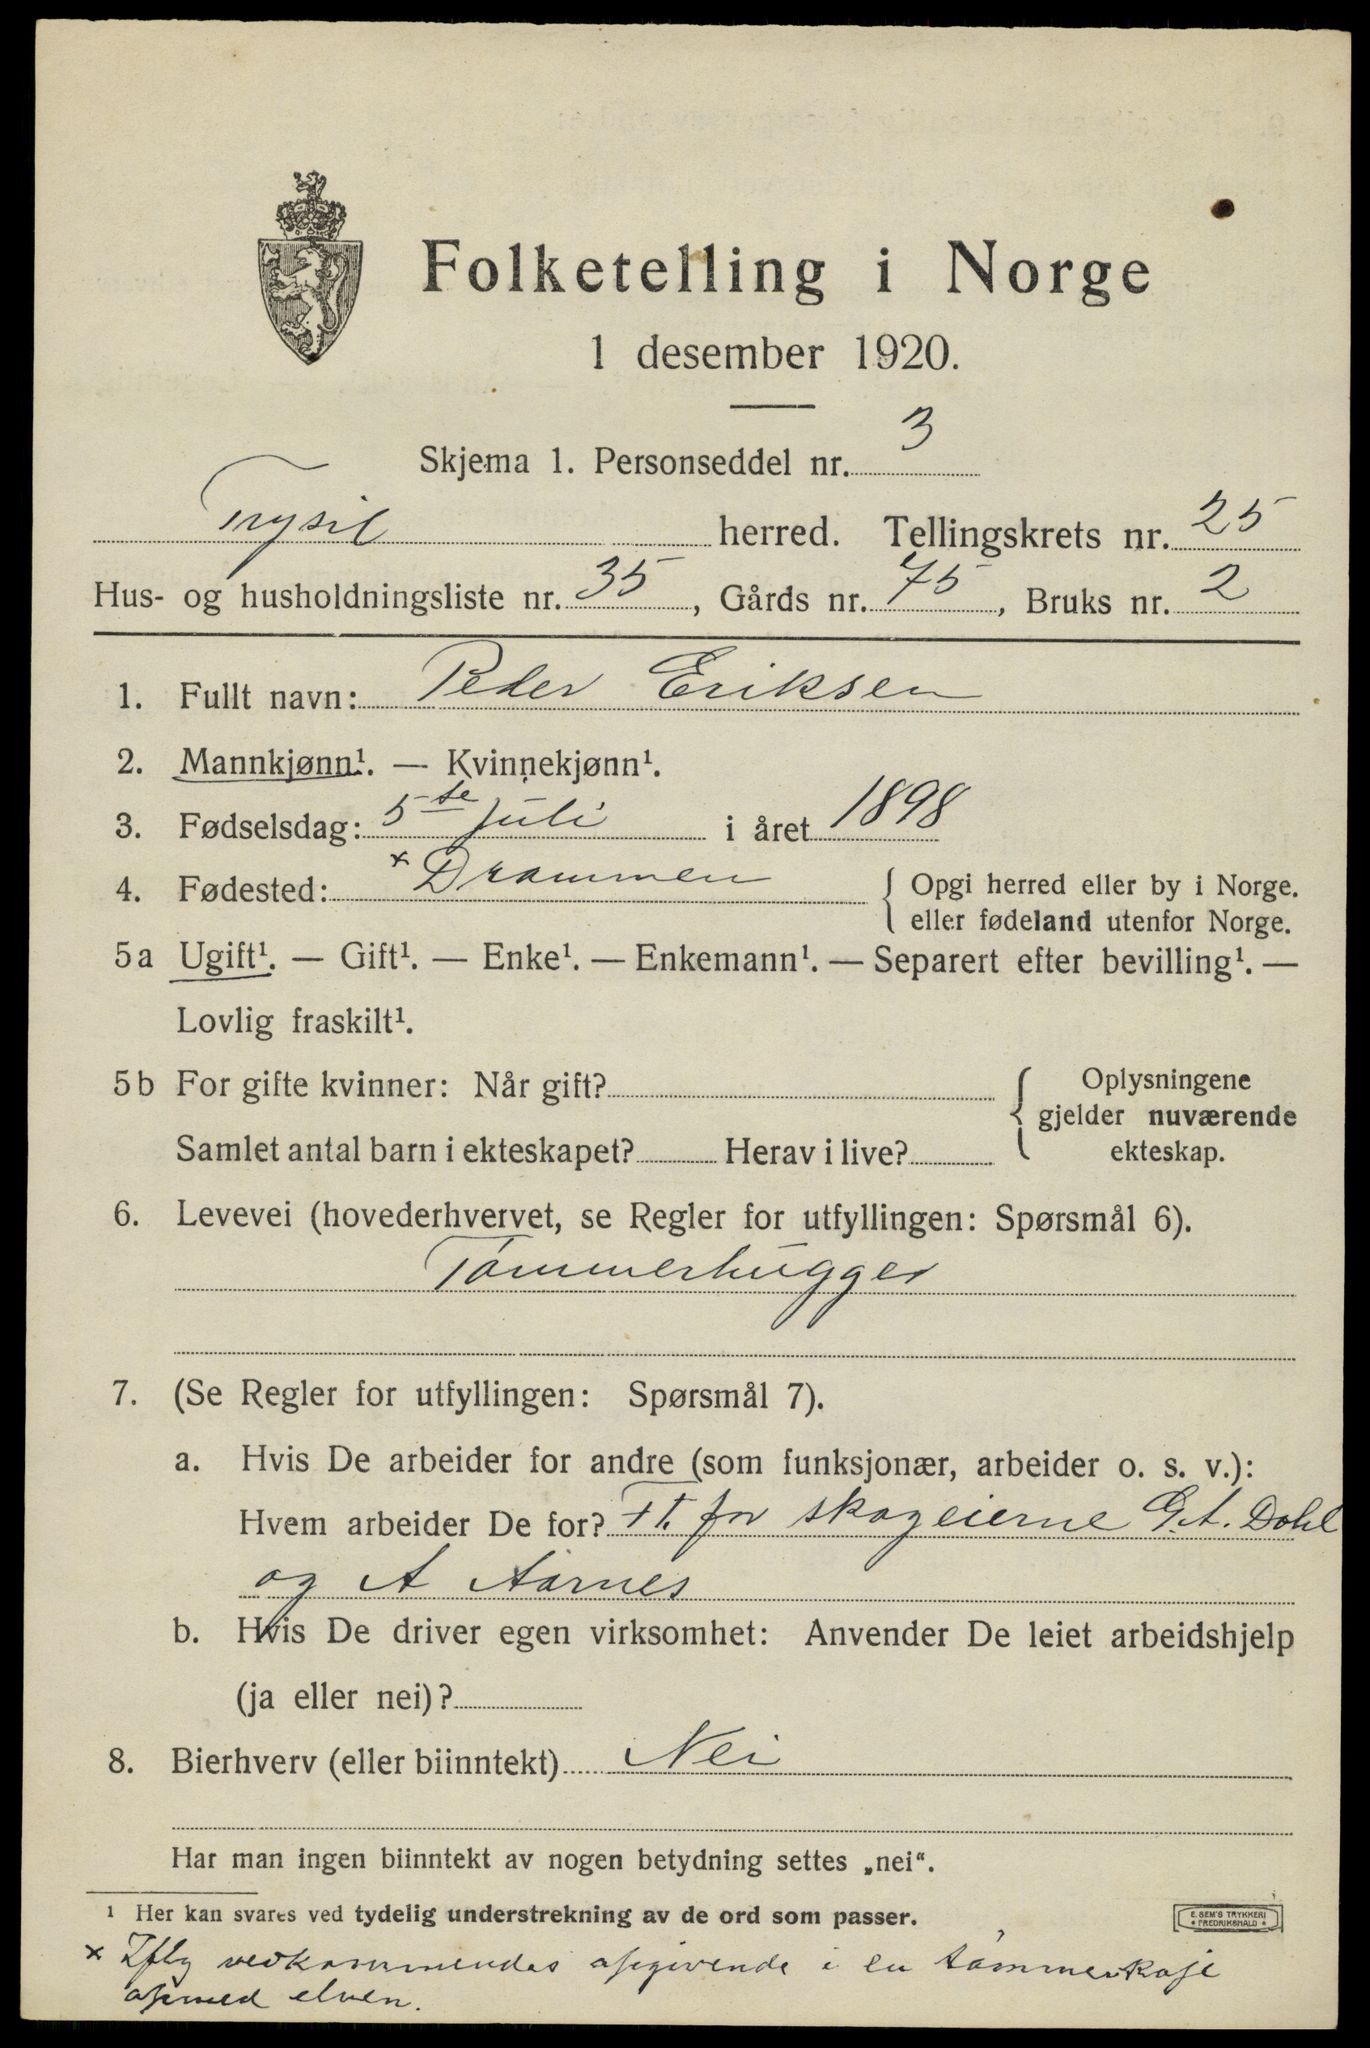 Folketelling i Norge
1 desember 1920.
Skjema 1. Personseddel nr. 3
Trysil herred. Tellingskrets nr. 25
Hus- og husholdningsliste nr. 35, Gårds nr. 75, Bruks nr. 2
1. Fullt navn: Peder Eriksen
2. Mannkjønn¹. — Kvinnekjønn¹.
3. Fødselsdag: 5te juli i året 1898
4. Fødested: × Drammen { Opgi herred eller by i Norge.
eller fødeland utenfor Norge.
5a Ugift¹. — Gift¹. — Enke¹. — Enkemann¹. — Separert efter bevilling¹. —
Lovlig fraskilt¹.
5b For gifte kvinner: Når gift?
Samlet antal barn i ekteskapet? Herav i live?
{ Oplysningene
gjelder nuværende
ekteskap.
6. Levevei (hovederhvervet, se Regler for utfyllingen: Spørsmål 6).
Tømmerhugger
7. (Se Regler for utfyllingen: Spørsmål 7).
a. Hvis De arbeider for andre (som funksjonær, arbeider o. s. v.):
Hvem arbeider De for? Ft. for skogeierne G. A. Dohl
og A Aarnes
b. Hvis De driver egen virksomhet: Anvender De leiet arbeidshjelp
(ja eller nei)?
8. Bierhverv (eller biinntekt) Nei
Har man ingen biinntekt av nogen betydning settes „nei“.
¹ Her kan svares ved tydelig understrekning av de ord som passer.
E. SEM'S TRYKKERI
* FREDRIKSHALD *
× Iflg vedkommendes opgivende i en tømmerkoje
op med elven.